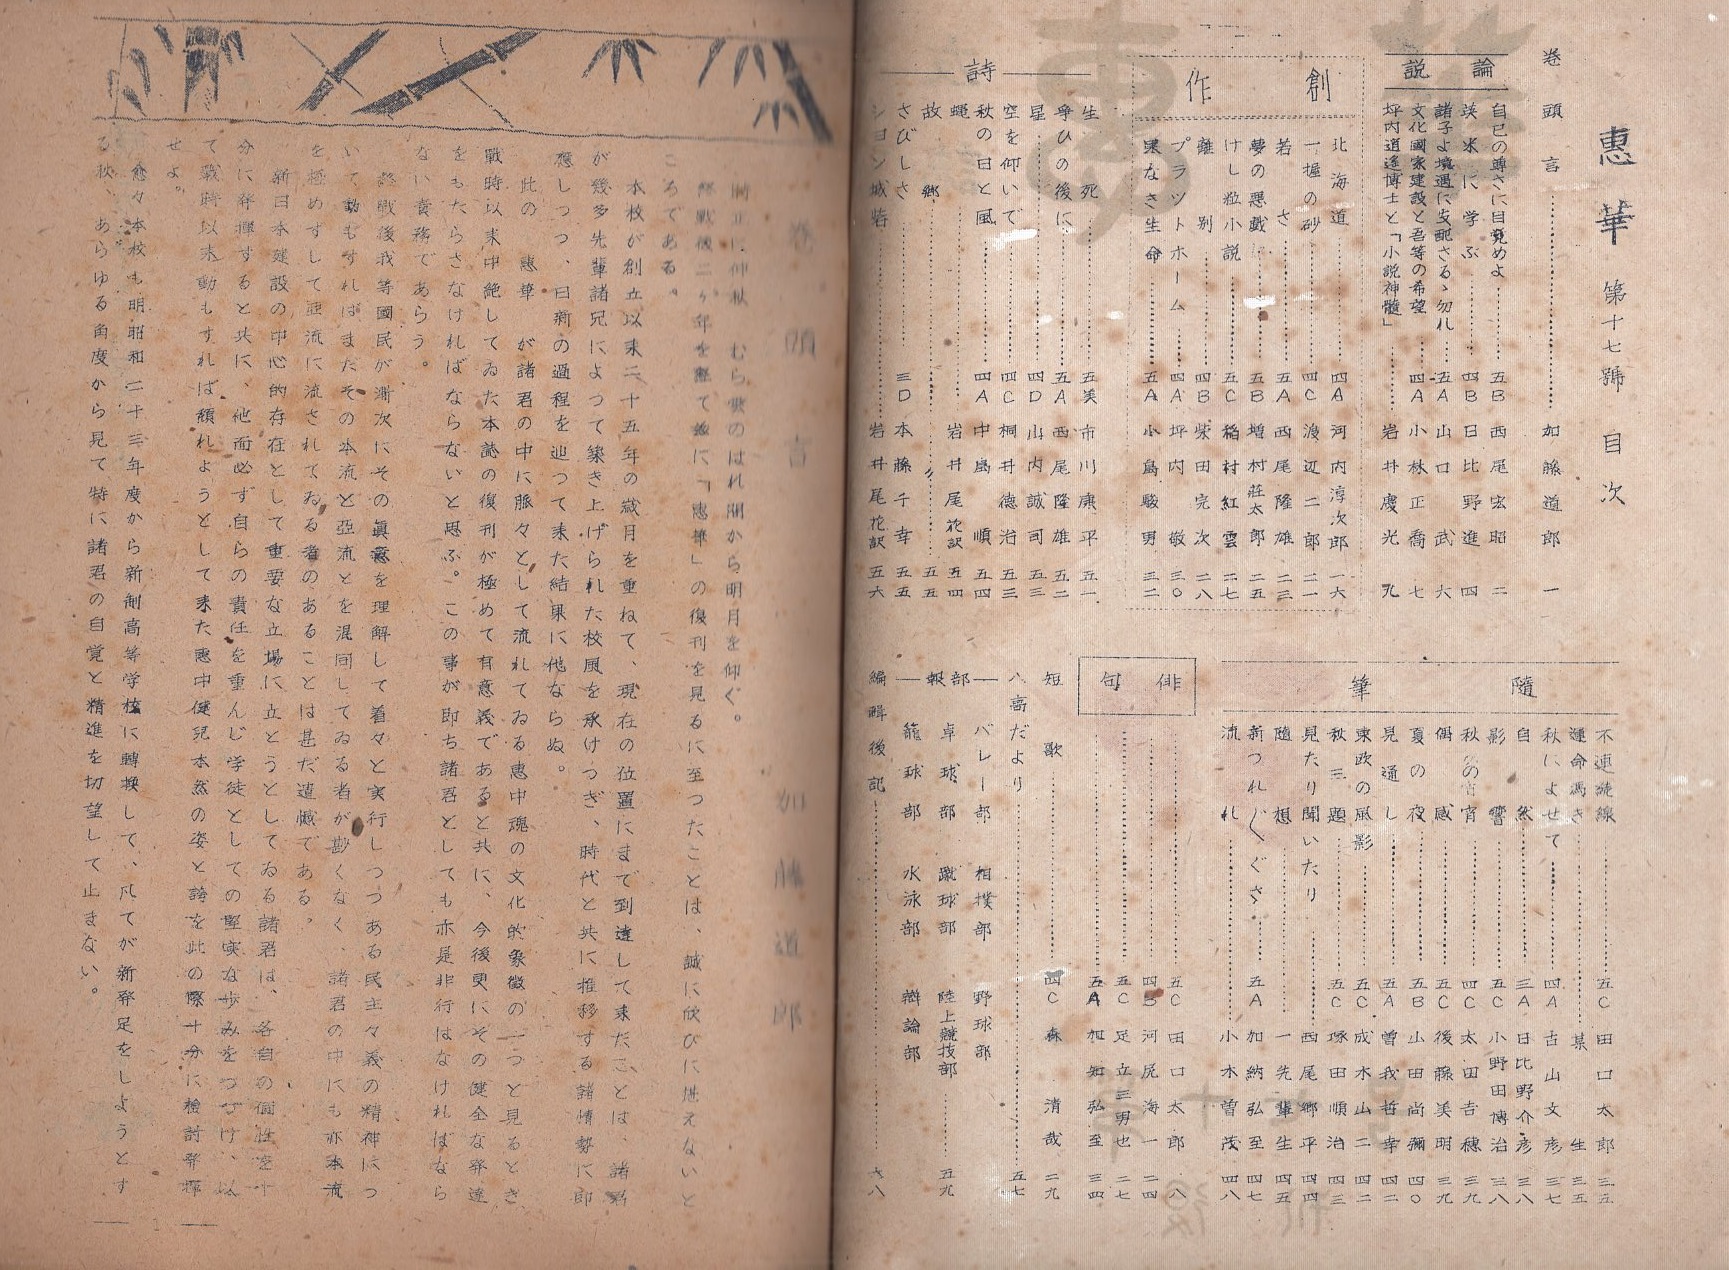 惠華 第十七號 目次
卷頭言 加藤道郎 一
論説
自己の尊さに目覚めよ 五B 西尾宏昭 二
英米に学ぶ 四B 日比野進 四
諸子よ境遇に支配さるゝ勿れ 五A 山口武 六
文化國家建設と吾等の希望 四A 小林正喬 七
坪内逍遥博士と「小説神髄」 岩井慶光 九
創作
北海道 四A 河内淳次郎 一六
一握の砂 四C 渡辺二郎 二一
若さ 五A 西尾隆雄 二三
夢の悪戯 五B 増村荘太郎 二五
けし粒小説 五C 稲村紅雲 二七
離別 四B 柴田完次 二八
プラットホーム 四A 坪内敬 三〇
果なき生命 五A 小島駿男 三二
詩
生死 五美 市川康平 五一
争ひの後に 五A 西尾隆雄 五二
星 四D 山内誠司 五三
空を仰いで 四C 桐井德治 五三
秋の日と風 四A 中島順 五四
蝿 岩井尾花訳 五四
故郷 〃 五五
さびしさ 三D 本藤千幸 五五
ション城砦 岩井尾花訳 五六
隨筆
不連續線 五C 田口太郎 三五
運命馮き 某生 三五
秋によせて 四A 古山文彦 三七
自然 三A 日比野介彦 三八
影響 五C 小野田博治 三八
秋の宵 四C 太田吉穂 三九
偶感 五C 後藤美明 三九
夏の夜 五B 山田尚彌 四〇
見通し 五A 曽我哲幸 四二
東政の風影 五C 成木山二 四二
秋三題 五C 塚田順治 四三
見たり聞いたり 西尾郷平 四四
隨想 一先輩生 四五
新つれ〴〵ぐさ 五A 加納弘至 四七
流れ 小木曽茂 四八
俳句
五C 田口太郎 一八
四B 河尻海一 二四
五C 足立三男也 二七
五A 加知弘至 三四
短歌 四C 森清哉 二九
八高だより 五七
部報
バレー部 相撲部 野球部
卓球部 蹴球部 陸上競技部 五九
籠球部 水泳部 辯論部
編輯後記 六八
卷頭言
加藤道郎
時正に仲秋 むら雲のはれ間から明月を仰ぐ。
終戰後二ヶ年を歴て茲に「惠華」の復刊を見るに至つたことは、誠に欣びに堪えないと
ころである。
本校が創立以来二十五年の歳月を重ねて、現在の位置にまで到達して来たことは、諸君
が幾多先輩諸兄によつて築き上げられた校風を承けつぎ、時代と共に推移する諸情勢に即
應しつつ、日新の過程を辿つて来た結果に他ならぬ。
此の 惠華 が諸君の中に脈々として流れてゐる惠中魂の文化的象徴の一つと見るとき
戰時以来中絶してゐた本誌の復刊が極めて有意義であると共に、今後更にその健全な発達
をもたらさなければならないと思ふ。この事が即ち諸君としても亦是非行はなければなら
ない責務であらう。
終戰後我等國民が漸次にその眞意を理解して着々と実行しつつある民主々義の精神につ
いて動もすればまだその本流と亞流とを混同してゐる者が尠くなく、諸君の中にも亦本流
を極めずして亞流に流されてゐる者のあることは甚だ遺憾である。
新日本建設の中心的存在として重要な立場に立とうとしてゐる諸君は、各自の個性を十
分に発揮すると共に、他面必ず自らの責任を重んじ学徒としての堅実な歩みをつづけ、以
て戰時以来動もすれば頽れようとして来た惠中健兒本然の姿と誇を此の際十分に檢討発揮
せよ。
愈々本校も明昭和二十三年度から新制高等学校に轉換して、凡てが新発足をしようとす
る秋、あらゆる角度から見て特に諸君の自覚と精進を切望して止まない。
— 1 —